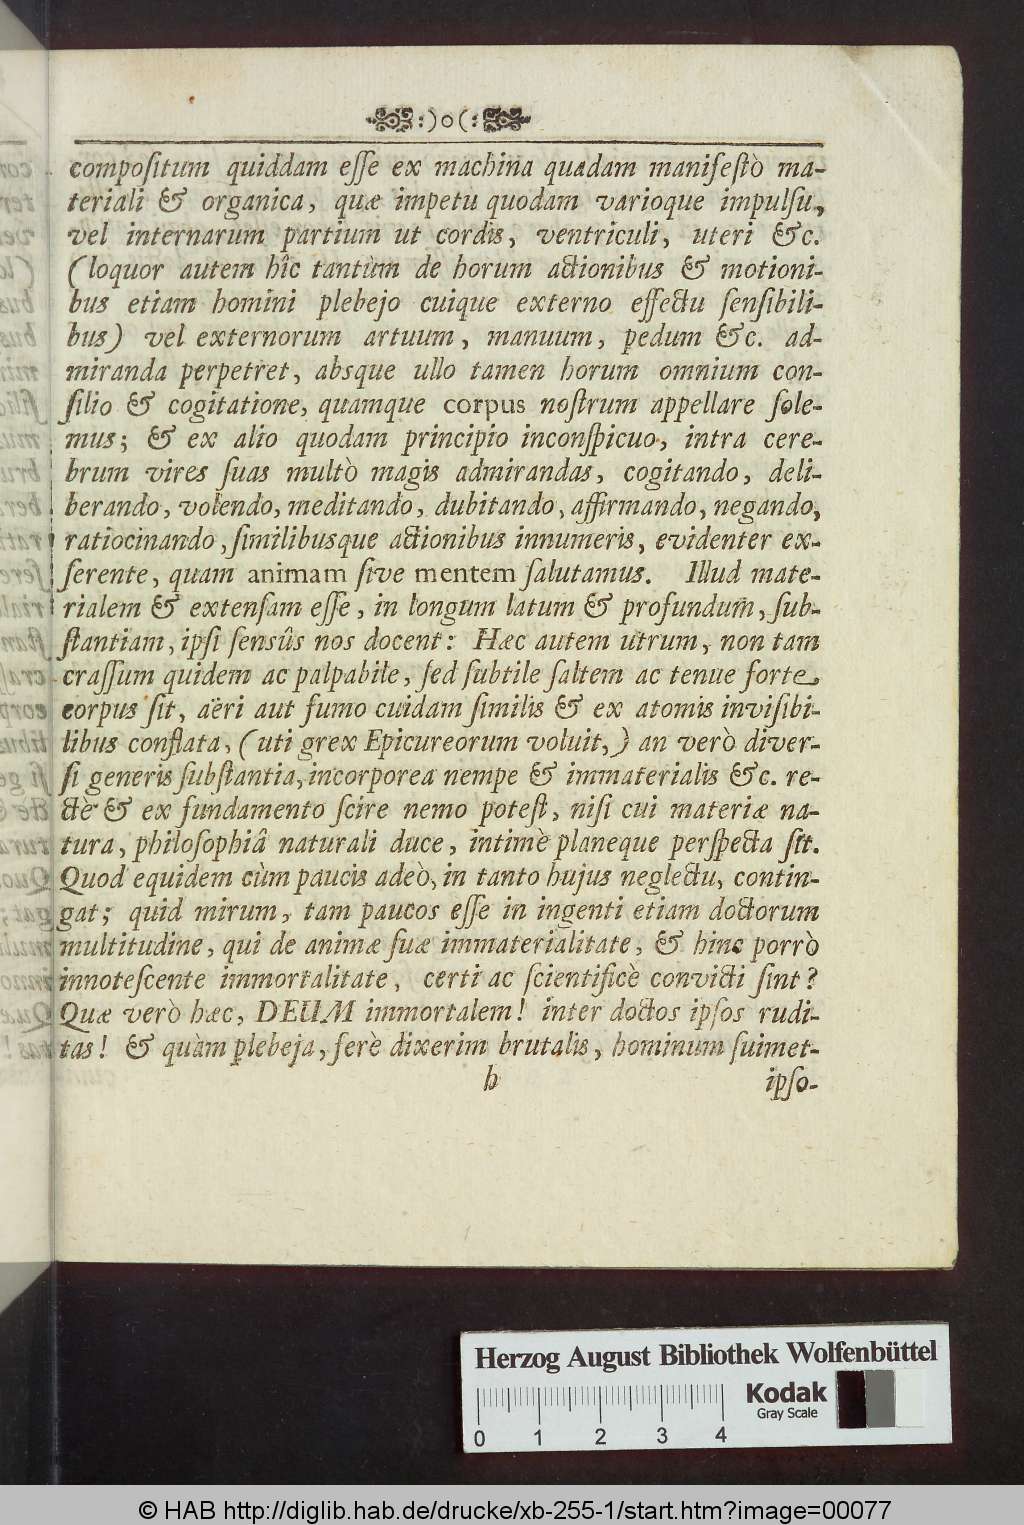 :)o(:
compoſitum quiddam eſſe ex machina quadam manifeſtò ma-
teriali & organica, quæ impetu quodam varioque impulſu,
vel internarum partium ut cordis, ventriculi, uteri &c.
(loquor autem hîc tantùm de horum actionibus & motioni-
bus etiam homini plebejo cuique externo effectu ſenſibili-
bus) vel externorum artuum, manuum, pedum &c. ad-
miranda perpetret, absque ullo tamen horum omnium con-
ſilio & cogitatione, quamque corpus noſtrum appellare ſole-
mus; & ex alio quodam principio inconſpicuo, intra cere-
brum vires ſuas multò magis admirandas, cogitando, deli-
berando, volendo, meditando, dubitando, affirmando, negando,
ratiocinando, ſimilibusque actionibus innumeris, evidenter ex-
ſerente, quam animam ſive mentem ſalutamus. Illud mate-
rialem & extenſam eſſe, in longum latum & profundum, ſub-
ſtantiam, ipſi ſensûs nos docent: Hæc autem utrum, non tam
craſſum quidem ac palpabile, ſed ſubtile ſaltem ac tenue forte
corpus ſit, aëri aut fumo cuidam ſimilis & ex atomis inviſibi-
libus conflata, (uti grex Epicureorum voluit,) an verò diver-
ſi generis ſubſtantia, incorporea nempe & immaterialis &c. re-
ctè & ex fundamento ſcire nemo poteſt, niſi cui materiæ na-
tura, philoſophiâ naturali duce, intimè planeque perſpecta ſit.
Quod equidem cùm paucis adeò, in tanto hujus neglectu, contin-
gat; quid mirum, tam paucos eſſe in ingenti etiam doctorum
multitudine, qui de animæ ſuæ immaterialitate, & hinc porrò
innoteſcente immortalitate, certi ac ſcientificè convicti ſint?
Quæ verò hæc, DEUM immortalem! inter doctos ipſos rudi-
tas! & quàm plebeja, ferè dixerim brutalis, hominum ſuimet-
h ipſo-
Herzog August Bibliothek Wolfenbüttel
Kodak
Gray Scale
0 1 2 3 4
© HAB http://diglib.hab.de/drucke/xb-255-1/start.htm?image=00077